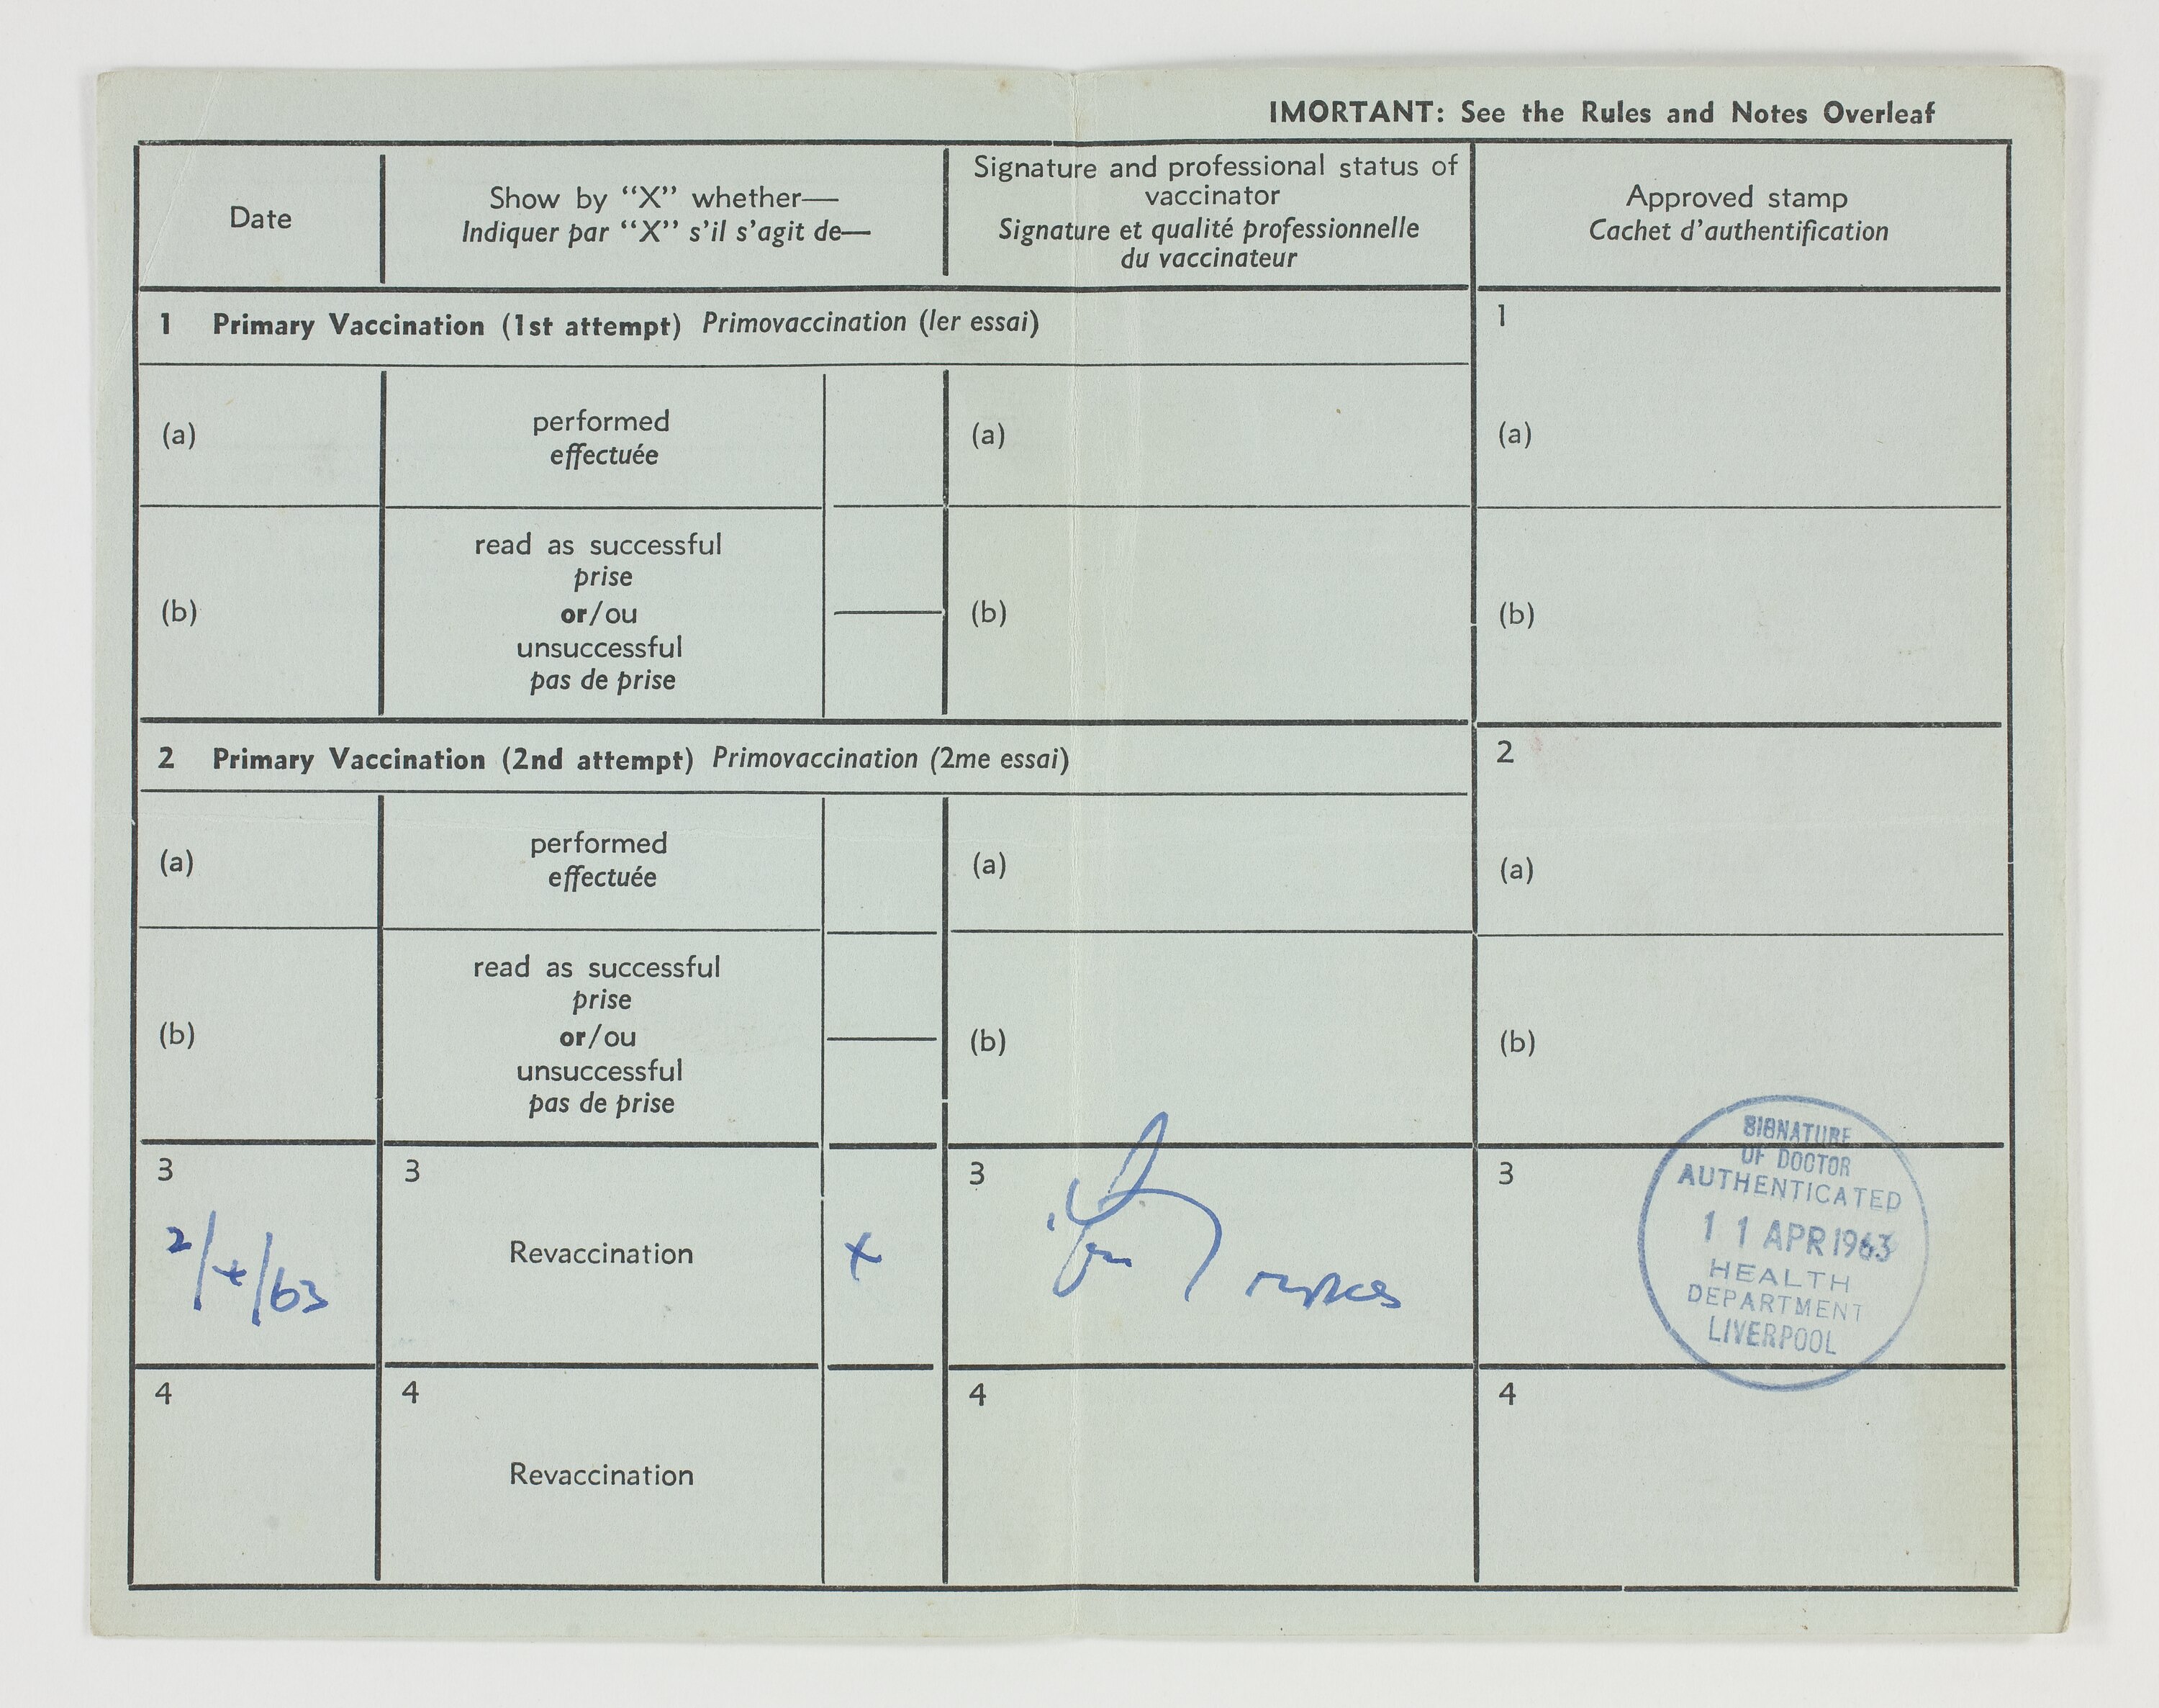 IMORTANT: See the Rules and Notes Overleaf
Date
Show by “X” whether—
Indiquer par “X” s'il s'agit de—
Signature and professional status of
vaccinator
Signature et qualité professionnelle
du vaccinateur
Approved stamp
Cachet d'authentification
1 Primary Vaccination (1st attempt) Primovaccination (ler essai)
1
(a)
performed
effectuée
(a)
(a)
(b)
read as successful
prise
or/ou
unsuccessful
pas de prise
(b)
(b)
2 Primary Vaccination (2nd attempt) Primovaccination (2me essai)
2
(a)
performed
effectuée
(a)
(a)
(b)
read as successful
prise
or/ou
unsuccessful
pas de prise
(b)
(b)
3
2/4/63
3
Revaccination
x
3
3
SIGNATURE
OF DOCTOR
AUTHENTICATED
11 APR 1963
HEALTH
DEPARTMENT
LIVERPOOL
4
4
Revaccination
4
4